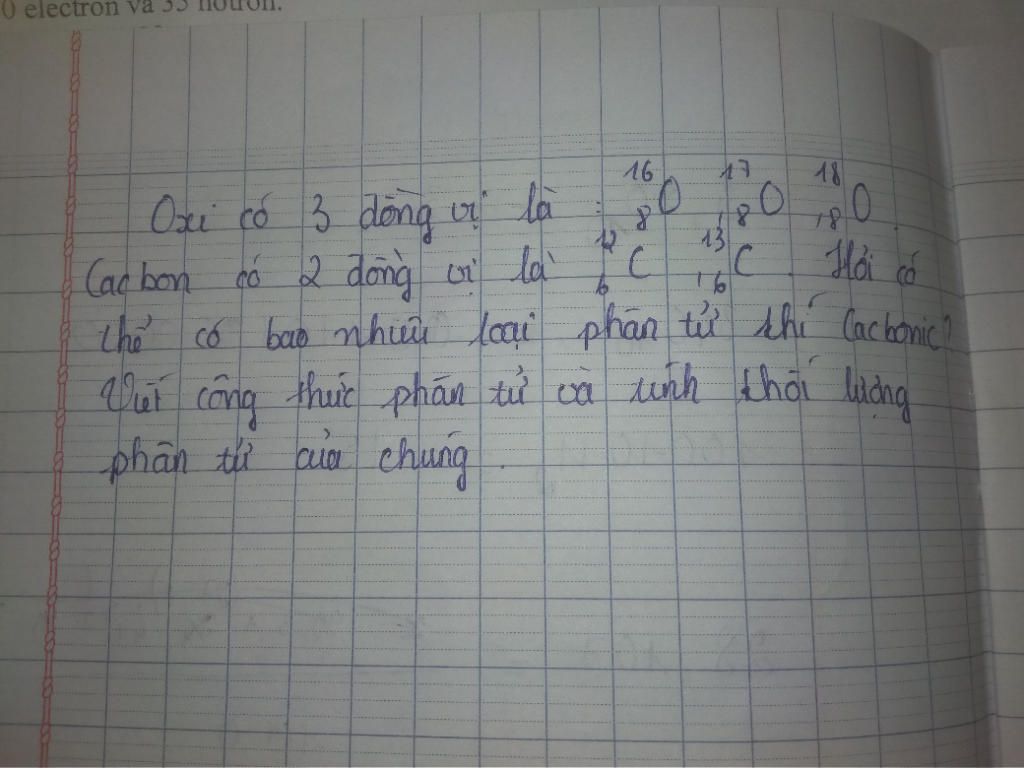 0 electron và 35 nơtron.
Oxi có 3 đồng vị là : ¹⁶₈O, ¹⁷₈O, ¹⁸₈O.
Cacbon có 2 đồng vị là ¹²₆C, ¹³₆C. Hỏi có
thể có bao nhiêu loại phân tử khí Cacbonic?
Viết công thức phân tử và tính khối lượng
phân tử của chúng.